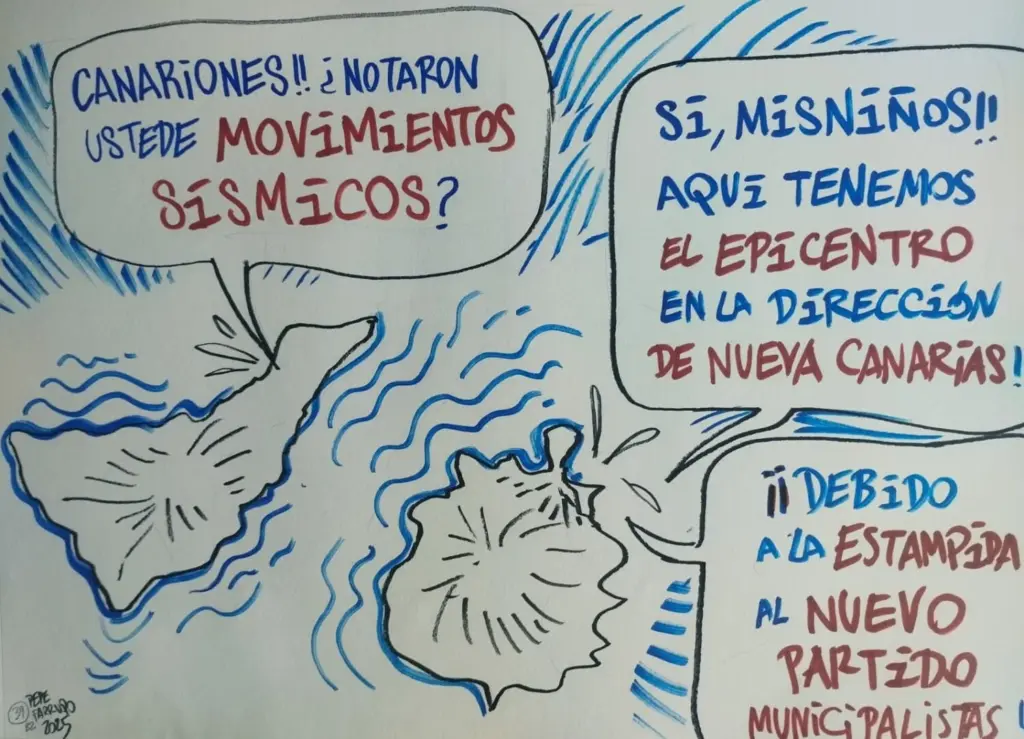 CANARIONES!! ¿NOTARON
USTEDE MOVIMIENTOS
SÍSMICOS?
SI, MISNIÑOS!!
AQUI TENEMOS
EL EPICENTRO
EN LA DIRECCIÓN
DE NUEVA CANARIAS!
¡¡DEBIDO
A LA ESTAMPIDA
AL NUEVO
PARTIDO
MUNICIPALISTAS!
39
PEPE
2025